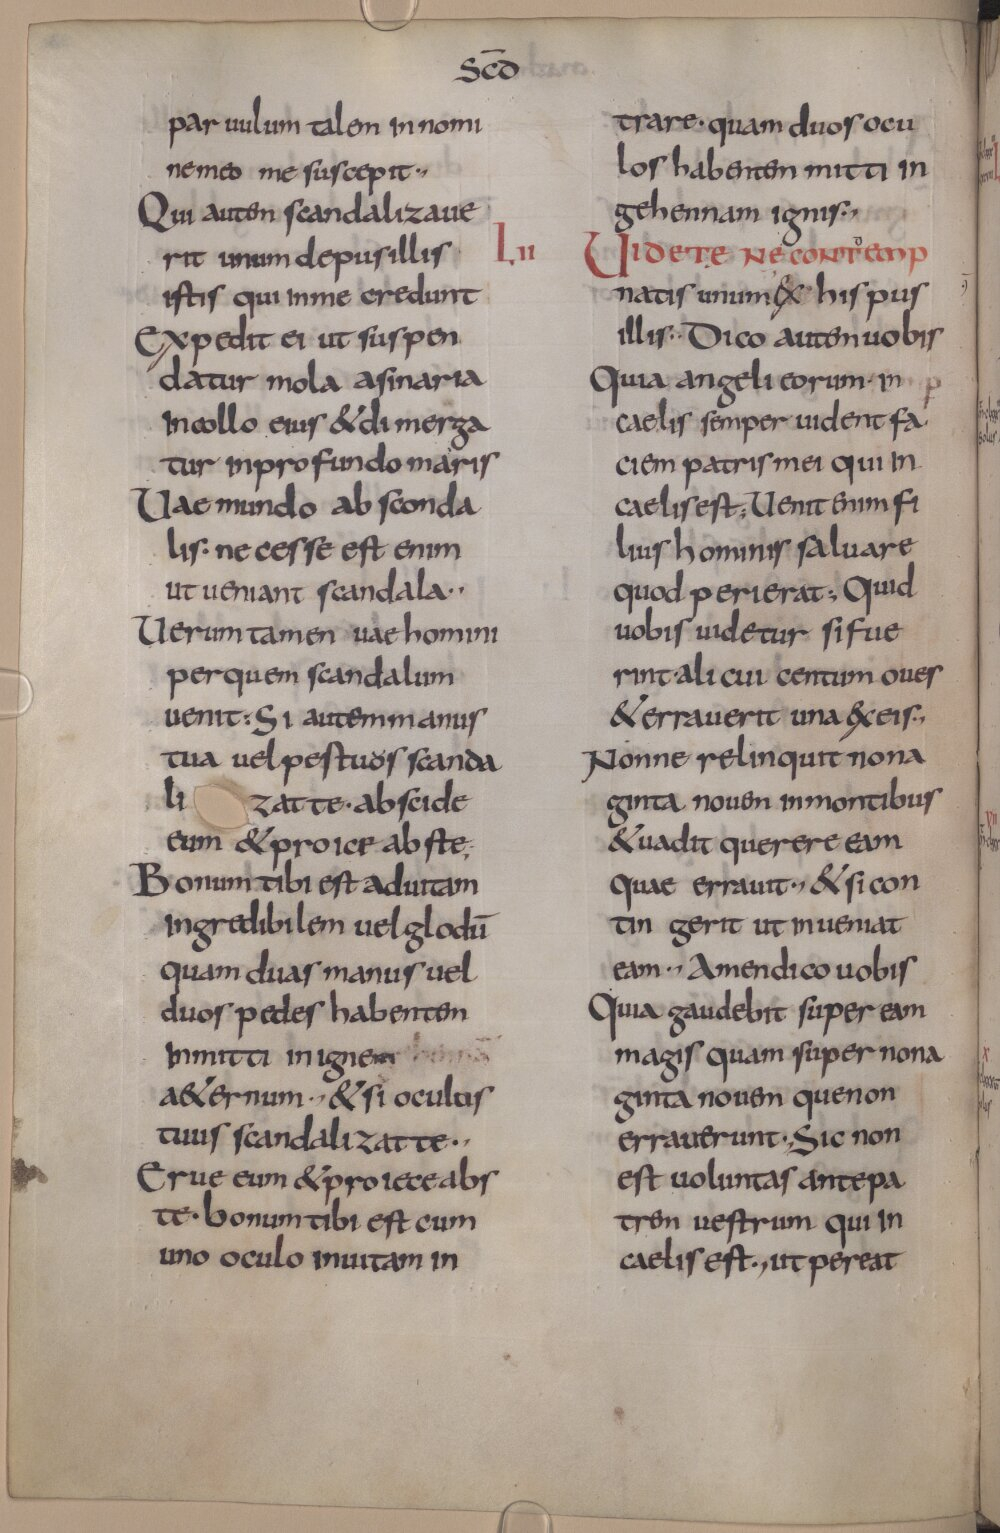 Scd̄
par uulum talem in nomi
ne meo me suscepit
Qui autem scandalizaue
rit unum de pusillis
istis qui in me credunt
Expedit ei ut suspen
datur mola asinaria
in collo eius & dimerga
tur in profundo maris
Uae mundo ab sconda
lis· necesse est enim
ut ueniant scandala·
Uerum tamen uae homini
per quem scandalum
uenit: Si autem manus
tua uel pes tuus scanda
li zat te· abscide
eum & proice abs te;
Bonum tibi est ad uitam
ingredi bilem uel glodū
quam duas manus uel
duos pedes habentem
in mitti in ignem
a&ernum·, & si ocultis
tuus scandalizat te·,
Erue eum & proiece abs
te· bonum tibi est cum
uno oculo in uitam in
trare· quam duos ocu
los habentem mitti in
gehennam ignis·,
Lii
Uidete ne contemp
natis unum ex his pus
illis·· Dico autem uobis
Quia angeli eorum in
caelis semper uident fa
ciem patris mei qui in
caelis est; Uenit enim fi
lius hominis saluare
quod perierat; Quid
uobis uidetur si fue
rint alicui centum oues
& errauerit una ex eis·,
Nonne relinquit nona
ginta nouem in montibus
& uadit querere eam
quae errauit·, & si con
tin gerit ut inueniat
eam·, Amen dico uobis
Quia gaudebit super eam
magis quam super nona
ginta nouem que non
errauerunt·, Sic non
est uoluntas ante pa
trem uestrum qui in
caelis est·, ut pereat